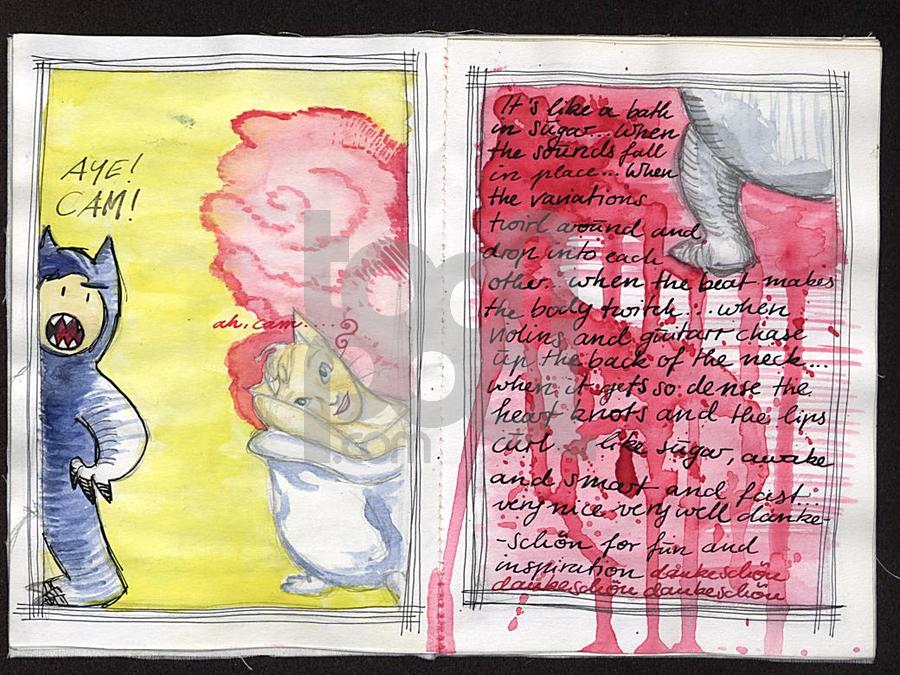 AYE!
CAM!
ah, cam.....
It's like a bath
in sugar...when
the sounds fall
in place...when
the variations
twirl around and
drop into each
other...when the beat makes
the body twitch....when
violins and guitarr chase
up the back of the neck...
when it gets so dense the
heart knots and the lips
curl... like sugar, awake
and smart and fast.
very nice very well danke-
-schön for fun and
inspiration dankeschön
dankeschön dankeschön
.com